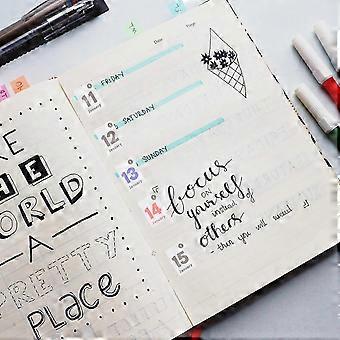 KE
THE
WORLD
A
PRETTY
PLACE
Date
Page
11
January
FRIDAY
12
January
SATURDAY
13
January
SUNDAY
14
January
15
January
focus
on
yourself
instead of
others
- then you will